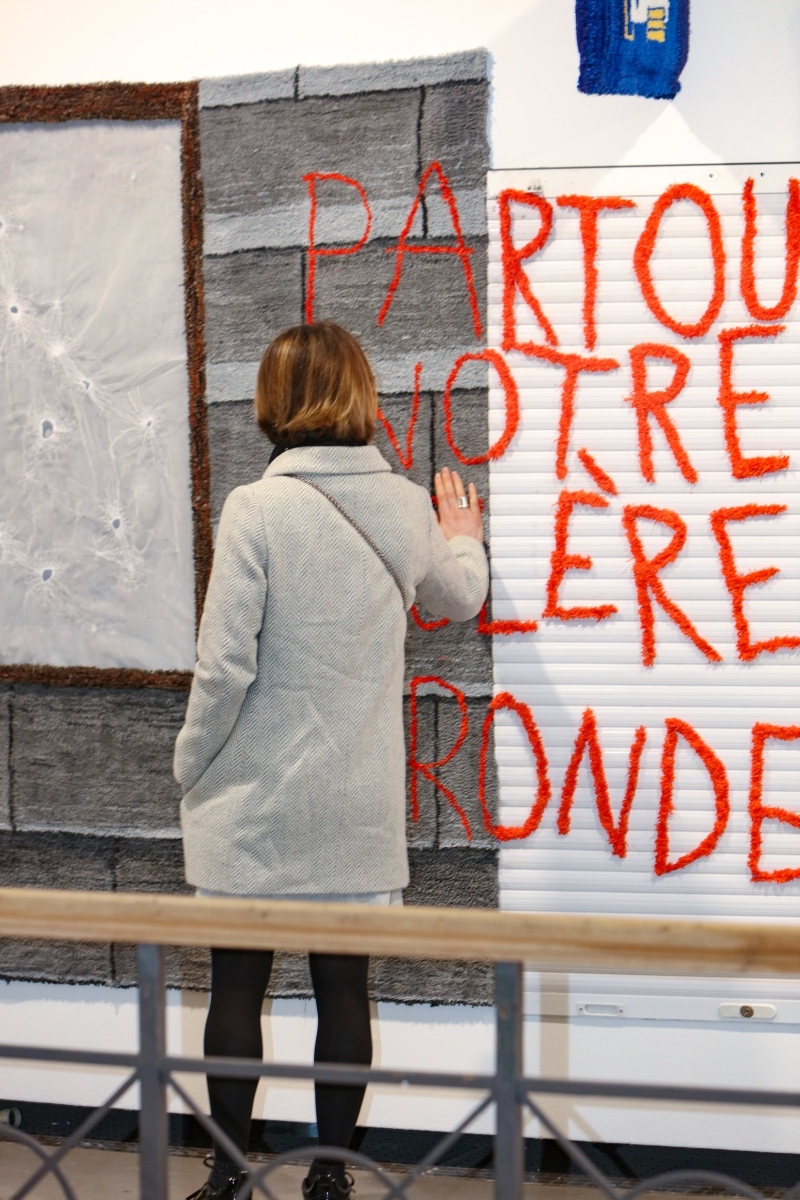 PARTOU
NOTRE
CLÈRE
RONDE